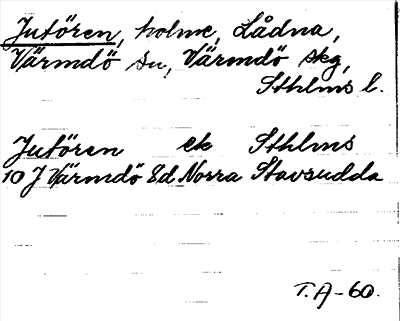 Jutören, holme, Lådna,
Värmdö sn, Värmdö skg,
Sthlms l.
Jutören ek Sthlms
10 J Värmdö Sd Norra Stavsudda
T.A-60.